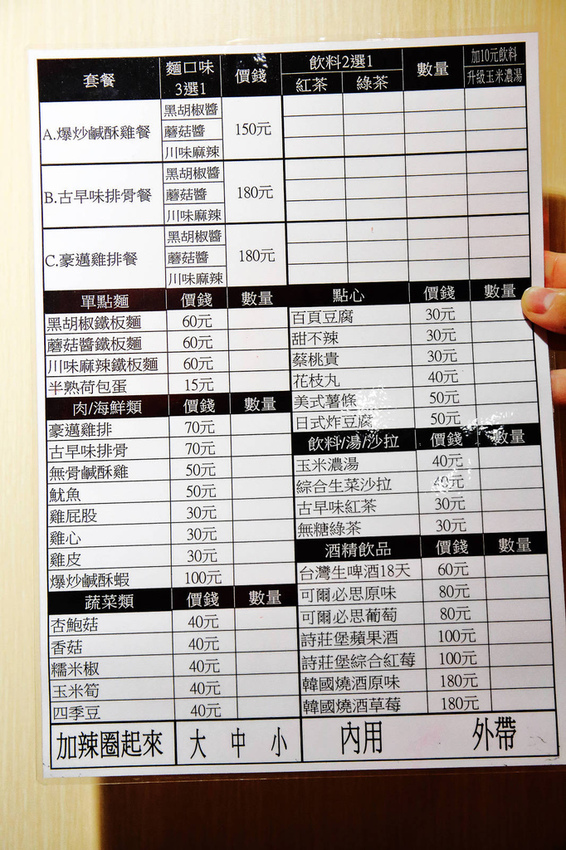 套餐 麵口味 3選1 價錢 飲料2選1 紅茶 綠茶 數量 加10元飲料 升級玉米濃湯
A.爆炒鹹酥雞餐 黑胡椒醬 蘑菇醬 川味麻辣 150元
B.古早味排骨餐 黑胡椒醬 蘑菇醬 川味麻辣 180元
C.豪邁雞排餐 黑胡椒醬 蘑菇醬 川味麻辣 180元
單點麵 價錢 數量
黑胡椒鐵板麵 60元
蘑菇醬鐵板麵 60元
川味麻辣鐵板麵 60元
半熟荷包蛋 15元
肉/海鮮類 價錢 數量
豪邁雞排 70元
古早味排骨 70元
無骨鹹酥雞 50元
魷魚 50元
雞屁股 30元
雞心 30元
雞皮 30元
爆炒鹹酥蝦 100元
蔬菜類 價錢 數量
杏鮑菇 40元
香菇 40元
糯米椒 40元
玉米筍 40元
四季豆 40元
點心 價錢 數量
百頁豆腐 30元
甜不辣 30元
蔡桃貴 30元
花枝丸 40元
美式薯條 50元
日式炸豆腐 50元
飲料/湯/沙拉 價錢 數量
玉米濃湯 40元
綜合生菜沙拉 40元
古早味紅茶 30元
無糖綠茶 30元
酒精飲品 價錢 數量
台灣生啤酒18天 60元
可爾必思原味 80元
可爾必思葡萄 80元
詩莊堡蘋果酒 100元
詩莊堡綜合紅莓 100元
韓國燒酒原味 180元
韓國燒酒草莓 180元
加辣圈起來 大 中 小 內用 外帶